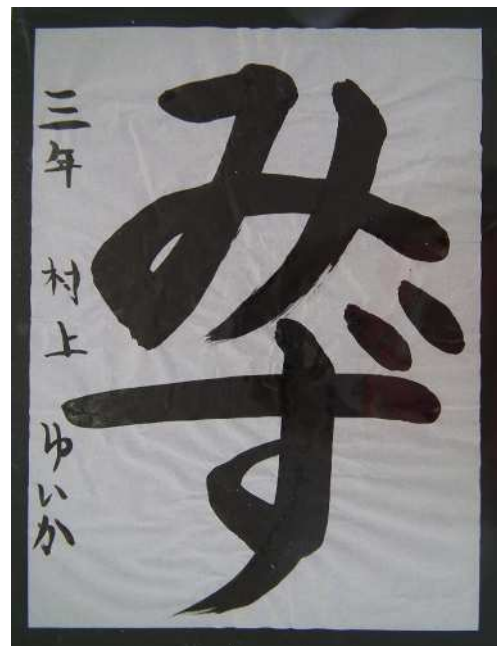 みず
三年 村上 ゆいか